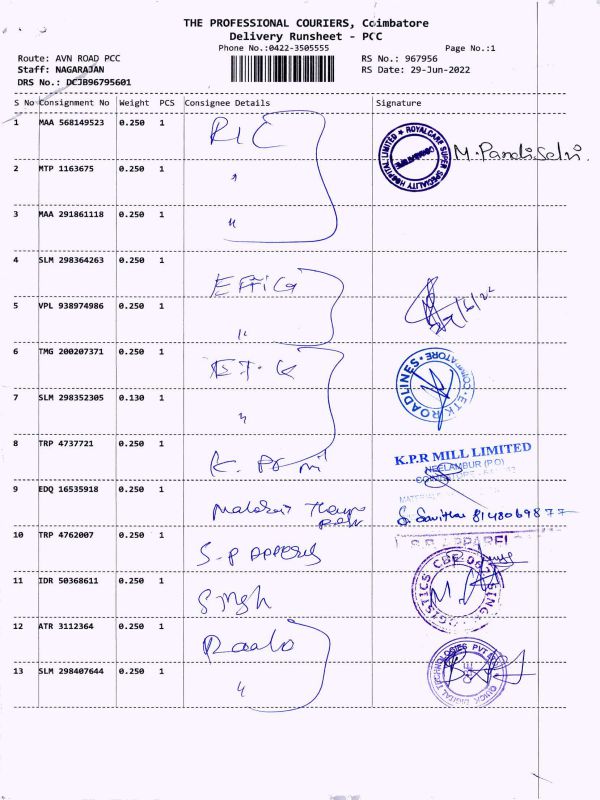 THE PROFESSIONAL COURIERS, Coimbatore
Delivery Runsheet - PCC
Phone No.:0422-3505555
Page No.:1
Route: AVN ROAD PCC
RS No.: 967956
Staff: NAGARAJAN
RS Date: 29-Jun-2022
DRS No.: DCJB96795601
S No Consignment No Weight PCS Consignee Details Signature
1 MAA 568149523 0.250 1
ROYALCARE SUPER SPECIALITY HOSPITAL LIMITED
COIMBATORE
M. Pandiselvi
2 MTP 1163675 0.250 1 "
3 MAA 291861118 0.250 1 "
4 SLM 298364263 0.250 1
5 VPL 938974986 0.250 1 "
6 TMG 200207371 0.250 1
ETK ROADLINES
COIMBATORE
7 SLM 298352305 0.130 1 "
8 TRP 4737721 0.250 1
K.P.R MILL LIMITED
NEELAMBUR (P.O)
9 EDQ 16535918 0.250 1
S. Savitha 8148069877
10 TRP 4762007 0.250 1 S.P APPERELS
11 IDR 50368611 0.250 1 Singh
12 ATR 3112364 0.250 1
13 SLM 298407644 0.250 1 "